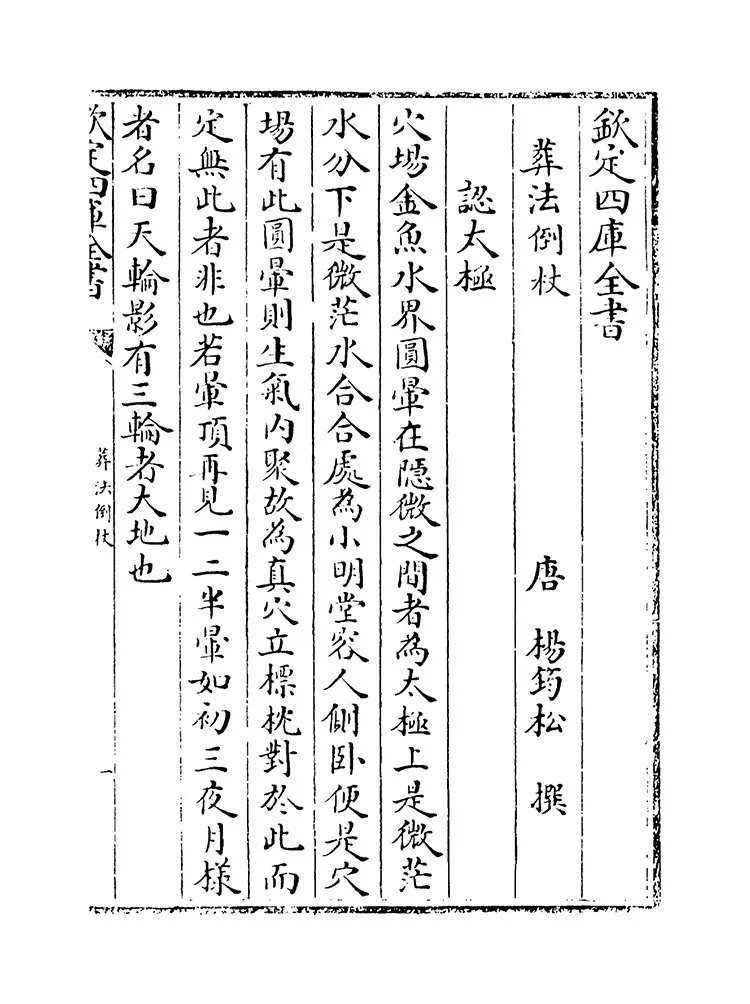 欽定四庫全書
葬法倒杖
唐 楊筠松 撰
認太極
穴場金魚水界圓暈在隱微之間者為太極上是微茫
水分下是微茫水合合處為小明堂容人側臥便是穴
場有此圓暈則生氣内聚故為真穴立標枕對於此而
定無此者非也若暈頂再見一二半暈如初三夜月樣
者名曰天輪影有三輪者大地也
欽定四庫全書
葬法倒杖
一